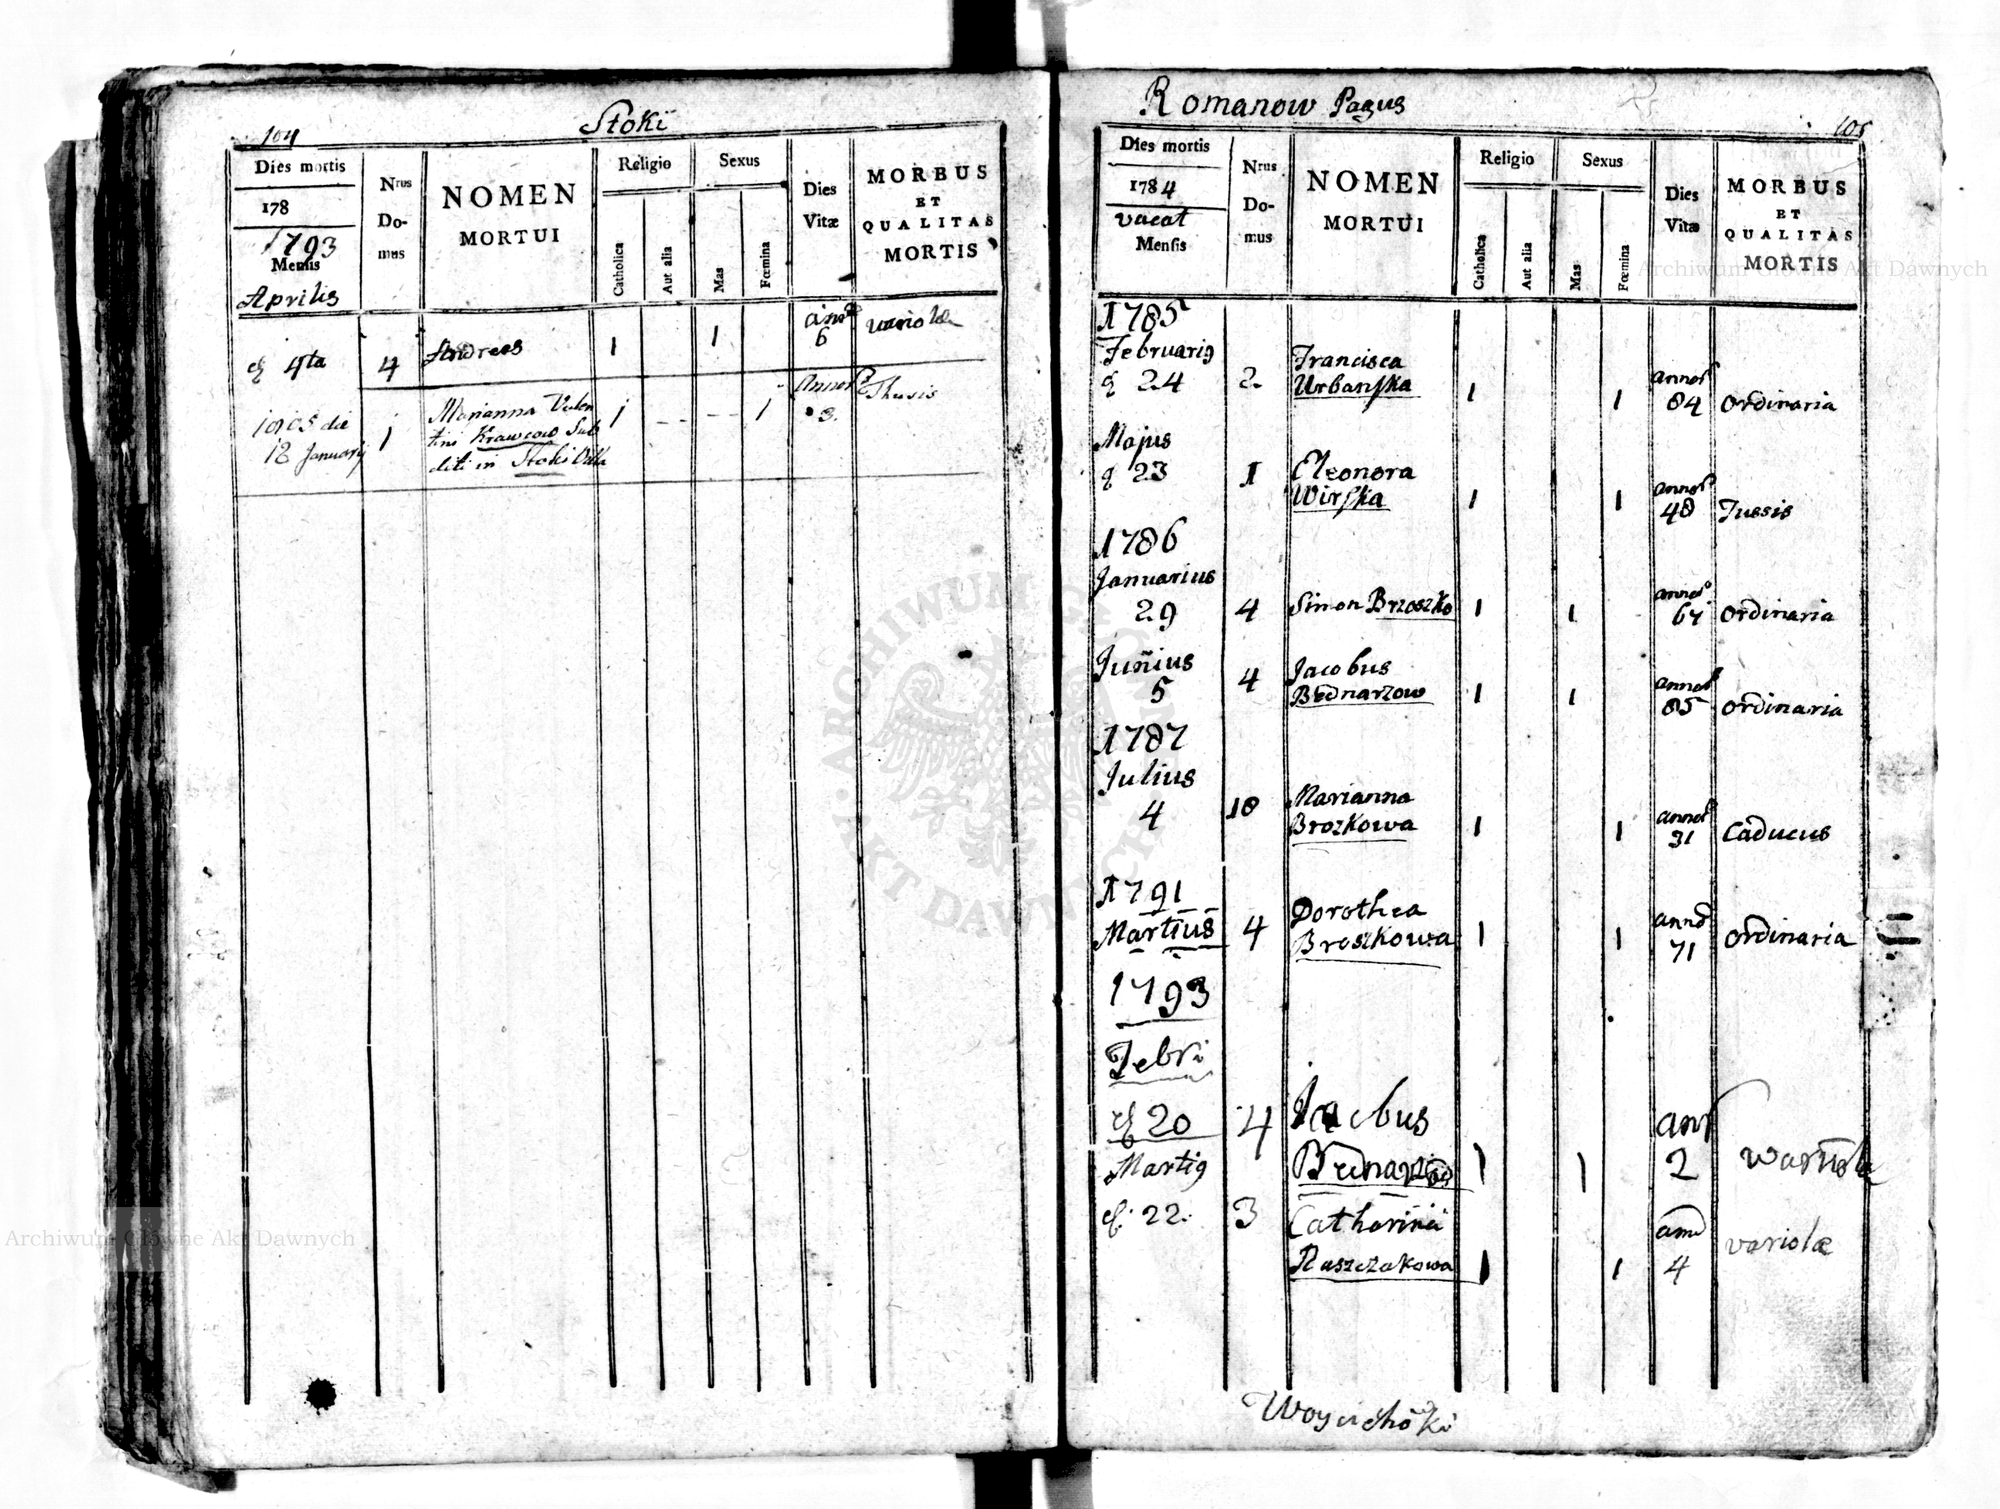 104
Stoki
Dies mortis
178
1793
Mensis
Aprilis
Nrus
Do-
mus
NOMEN
MORTUI
Religio
Catholica
Aut alia
Sexus
Mas
Fœmina
Dies
Vitæ
MORBUS
ET
QUALITAS
MORTIS
4ta 4 Andreas 1 1 6 variolæ
die 1 Marianna Valen 1 1 3. Thusis
12 January tini Krawcow Sub
diti in Stoki Villa
Romanow Pagus
105
Dies mortis
1784
vacat
Mensis
Nrus
Do-
mus
NOMEN
MORTUI
Religio
Catholica
Aut alia
Sexus
Mas
Fœmina
Dies
Vitæ
MORBUS
ET
QUALITAS
MORTIS
1785
Februarig Francisca
24 2. Urbanska 1 1 84 ordinaria
Majus
23 1 Eleonora
Wirska 1 1 48 Tussis
1786
Januarius
29 4 Simon Brzoszko 1 1 67 ordinaria
Junius Jacobus
5 4 Bednarzow 1 1 85 ordinaria
1787
Julius
4 10 Marianna
Brozkowa 1 1 31 Caducus
1791 Dorothea
Martius 4 Broszkowa 1 1 71 ordinaria
1793
Febri
20 4 Jacobus
Martig 1 1 2
22. 3 Catharina variolæ
Ruszczakowa 1 1 4
ARCHIWUM GŁÓWNE AKT DAWNYCH
Archiwum Główne Akt Dawnych
Archiwum Główne Akt Dawnych